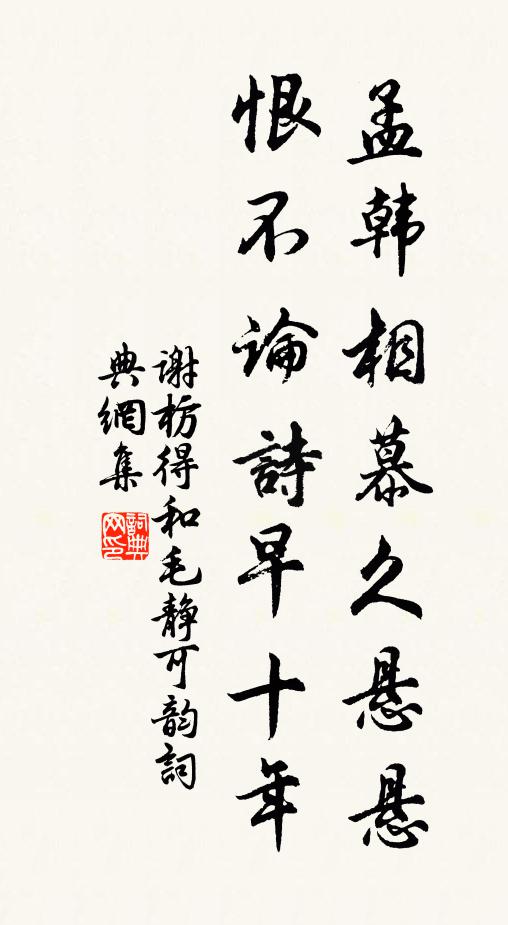 孟韩相慕久悬悬
恨不論詩早十年
谢枋得和毛静可韵詞
典網集
詞典
网印